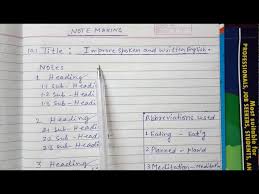 NOTE MAKING
Title : Improve spoken and written English.
Notes
1 Heading
1.1 Sub - Headi
1.2 Sub - Headi
1.3 Sub - Headi
2 Heading
2.1 Sub - Headi
2.2 Sub - Headi
2.3 Sub - Headi
3 Heading
Abbreviations used
1 Eating - Eat'g
2 Planned - Plan'd
3 Meditation - Meditat'n
Most suitable for
PROFESSIONALS, JOB SEEKERS, STUDENTS,